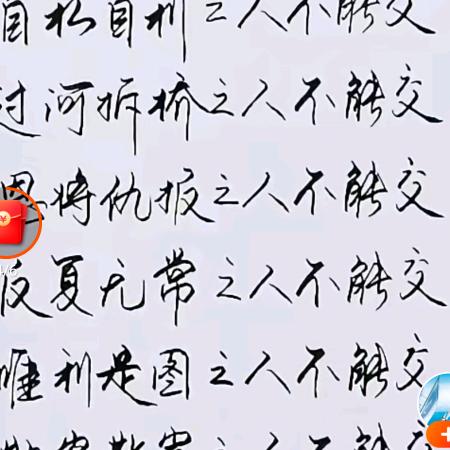 自私自利之人不能交
过河拆桥之人不能交
恩将仇报之人不能交
反复无常之人不能交
唯利是图之人不能交
之人不能交
¥
/6